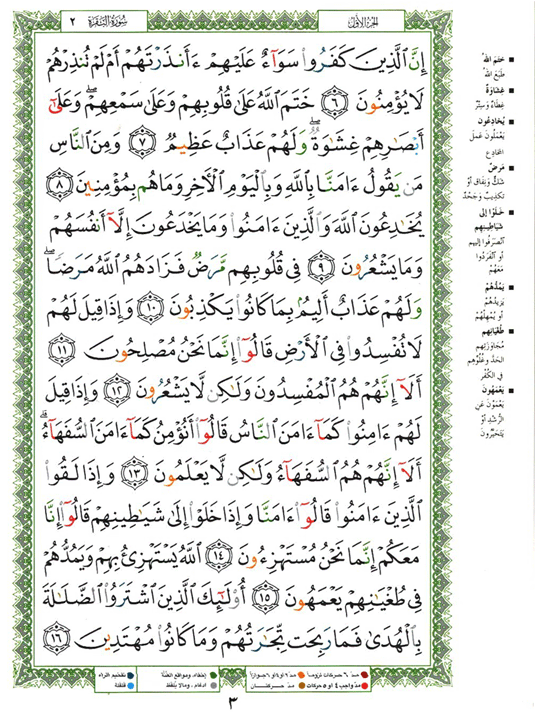 الجزء الأول
سورة البقرة ٢
إِنَّ ٱلَّذِينَ كَفَرُوا۟ سَوَآءٌ عَلَيْهِمْ ءَأَنذَرْتَهُمْ أَمْ لَمْ تُنذِرْهُمْ
لَا يُؤْمِنُونَ ٦ خَتَمَ ٱللَّهُ عَلَىٰ قُلُوبِهِمْ وَعَلَىٰ سَمْعِهِمْ ۖ وَعَلَىٰٓ
أَبْصَـٰرِهِمْ غِشَـٰوَةٌ ۖ وَلَهُمْ عَذَابٌ عَظِيمٌ ٧ وَمِنَ ٱلنَّاسِ
مَن يَقُولُ ءَامَنَّا بِٱللَّهِ وَبِٱلْيَوْمِ ٱلْـَٔاخِرِ وَمَا هُم بِمُؤْمِنِينَ ٨
يُخَـٰدِعُونَ ٱللَّهَ وَٱلَّذِينَ ءَامَنُوا۟ وَمَا يَخْدَعُونَ إِلَّآ أَنفُسَهُمْ
وَمَا يَشْعُرُونَ ٩ فِى قُلُوبِهِم مَّرَضٌ فَزَادَهُمُ ٱللَّهُ مَرَضًا ۖ
وَلَهُمْ عَذَابٌ أَلِيمٌۢ بِمَا كَانُوا۟ يَكْذِبُونَ ١٠ وَإِذَا قِيلَ لَهُمْ
لَا تُفْسِدُوا۟ فِى ٱلْأَرْضِ قَالُوٓا۟ إِنَّمَا نَحْنُ مُصْلِحُونَ ١١
أَلَآ إِنَّهُمْ هُمُ ٱلْمُفْسِدُونَ وَلَـٰكِن لَّا يَشْعُرُونَ ١٢ وَإِذَا قِيلَ
لَهُمْ ءَامِنُوا۟ كَمَآ ءَامَنَ ٱلنَّاسُ قَالُوٓا۟ أَنُؤْمِنُ كَمَآ ءَامَنَ ٱلسُّفَهَآءُ ۗ
أَلَآ إِنَّهُمْ هُمُ ٱلسُّفَهَآءُ وَلَـٰكِن لَّا يَعْلَمُونَ ١٣ وَإِذَا لَقُوا۟
ٱلَّذِينَ ءَامَنُوا۟ قَالُوٓا۟ ءَامَنَّا وَإِذَا خَلَوْا۟ إِلَىٰ شَيَـٰطِينِهِمْ قَالُوٓا۟ إِنَّا
مَعَكُمْ إِنَّمَا نَحْنُ مُسْتَهْزِءُونَ ١٤ ٱللَّهُ يَسْتَهْزِئُ بِهِمْ وَيَمُدُّهُمْ
فِى طُغْيَـٰنِهِمْ يَعْمَهُونَ ١٥ أُو۟لَـٰٓئِكَ ٱلَّذِينَ ٱشْتَرَوُا۟ ٱلضَّلَـٰلَةَ
بِٱلْهُدَىٰ فَمَا رَبِحَت تِّجَـٰرَتُهُمْ وَمَا كَانُوا۟ مُهْتَدِينَ ١٦
ختم الله
طبع الله
غشاوة
غطاء وستر
يخادعون
يعملون عمل
المخادع
مرض
شك ونفاق أو
تكذيب وجحد
خلوا إلى
شياطينهم
انصرفوا إليهم
أو انفردوا
معهم
يمدهم
يزيدهم
أو يمهلهم
طغيانهم
مجاوزتهم
الحد وغلوهم
في الكفر
يعمهون
يعمون عن
الرشد أو
يتحيرون
مد ٦ حركات لزوما مد ٢ أو ٤ أو ٦ جوازا إخفاء، ومواقع الغنة تفخيم الراء
مد واجب ٤ أو ٥ حركات مد حركتان إدغام، وما لا يلفظ قلقلة
٣